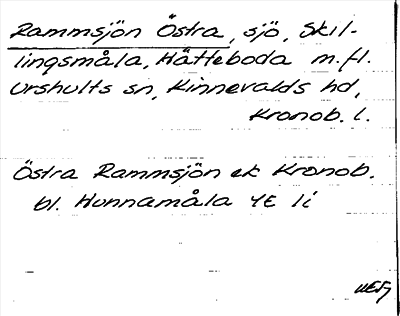 Rammsjön Östra, sjö, Skil-
lingsmåla, Hätteboda m.fl.
Urshults sn, Kinnevalds hd,
Kronob. l.
Östra Rammsjön ek Kronob.
bl. Hunnamåla 4E 1i